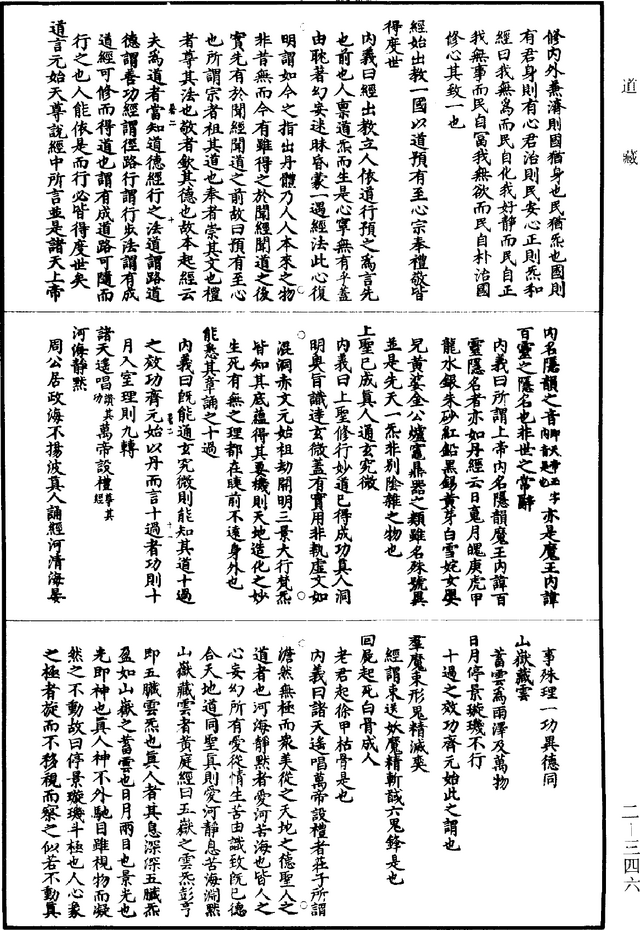 道藏
修內外兼濟則國猶身也民猶炁也國則
有君身則有心君治則民安心正則炁和
經曰我無為而民自化我好靜而民自正
我無事而民自富我無欲而民自朴治國
修心其致一也
經始出教一國以道預有至心宗奉禮敬皆
得度世
內義曰經出教立人依道行預之為言先
也前也人稟道炁而生是心寧無有乎蓋
由耽著幻妄迷昧昏蒙一遇經法此心復
明謂如今之指出丹體乃人人本來之物
非昔無而今有雖得之於聞經聞道之後
實先有於聞經聞道之前故曰預有至心
也所謂宗者祖其道也奉者崇其文也禮
者尊其法也敬者欽其德也故本起經云
夫為道者當知道德經行之法道謂路道
德謂善功經謂徑路行謂行步法謂有成
道經可修而得道也謂有成道路可隨而
行之也人能依是而行必皆得度世矣
道言元始天尊說經中所言並是諸天上帝
內名隱韻之音即大梵五字內音是也亦是魔王內諱
百靈之隱名也非世之常辭
內義曰所謂上帝內名隱韻魔王內諱百
靈隱名者亦如丹經云日䰟月魄庚虎甲
龍水銀朱砂紅鉛黑錫黃芽白雪姹女嬰
兒黃婆金公爐竈鼎器之類雖名殊號異
並是先天一炁非別陰雜之物也
上聖已成真人通玄究微
內義曰上聖修行妙道已得成功真人洞
明奧旨識達玄微蓋有實用非執虛文如
混洞赤文元始祖劫開明三景大行梵炁
皆知其底蘊得其要機則天地造化之妙
生死有無之理都在睫前不遠身外也
能悉其章誦之十過
內義曰既能通玄究微則能知其道十過
之效功齊元始以丹而言十過者功則十
月入室理則九轉
諸天遙唱讚其功萬帝設禮尊其經
河海靜默
周公居政海不揚波真人誦經河清海晏
事殊理一功異德同
山嶽藏雲
蓄雲為雨澤及萬物
日月停景璇璣不行
十過之效功齊元始此之謂也
羣魔束形鬼精滅爽
經謂束送妖魔精斬馘六鬼鋒是也
回屍起死白骨成人
老君起徐甲枯骨是也
內義曰諸天遙唱萬帝設禮者莊子所謂
澹然無極而衆美從之天地之德聖人之
道者也河海靜默者愛河苦海也皆人之
心妄幻所有愛從情生苦由識致既已德
合天地道同聖真則愛河靜息苦海淵默
山嶽藏雲者黃庭經曰五嶽之雲炁彭亨
即五臟雲炁也真人者其息深深五臟炁
盈如山嶽之蓄雲也日月兩目也景光也
光即神也真人神不外馳目雖視物而凝
然之不動故曰停景璇璣斗極也人心象
之極者旋而不移視而察之似若不動真
二—三四六